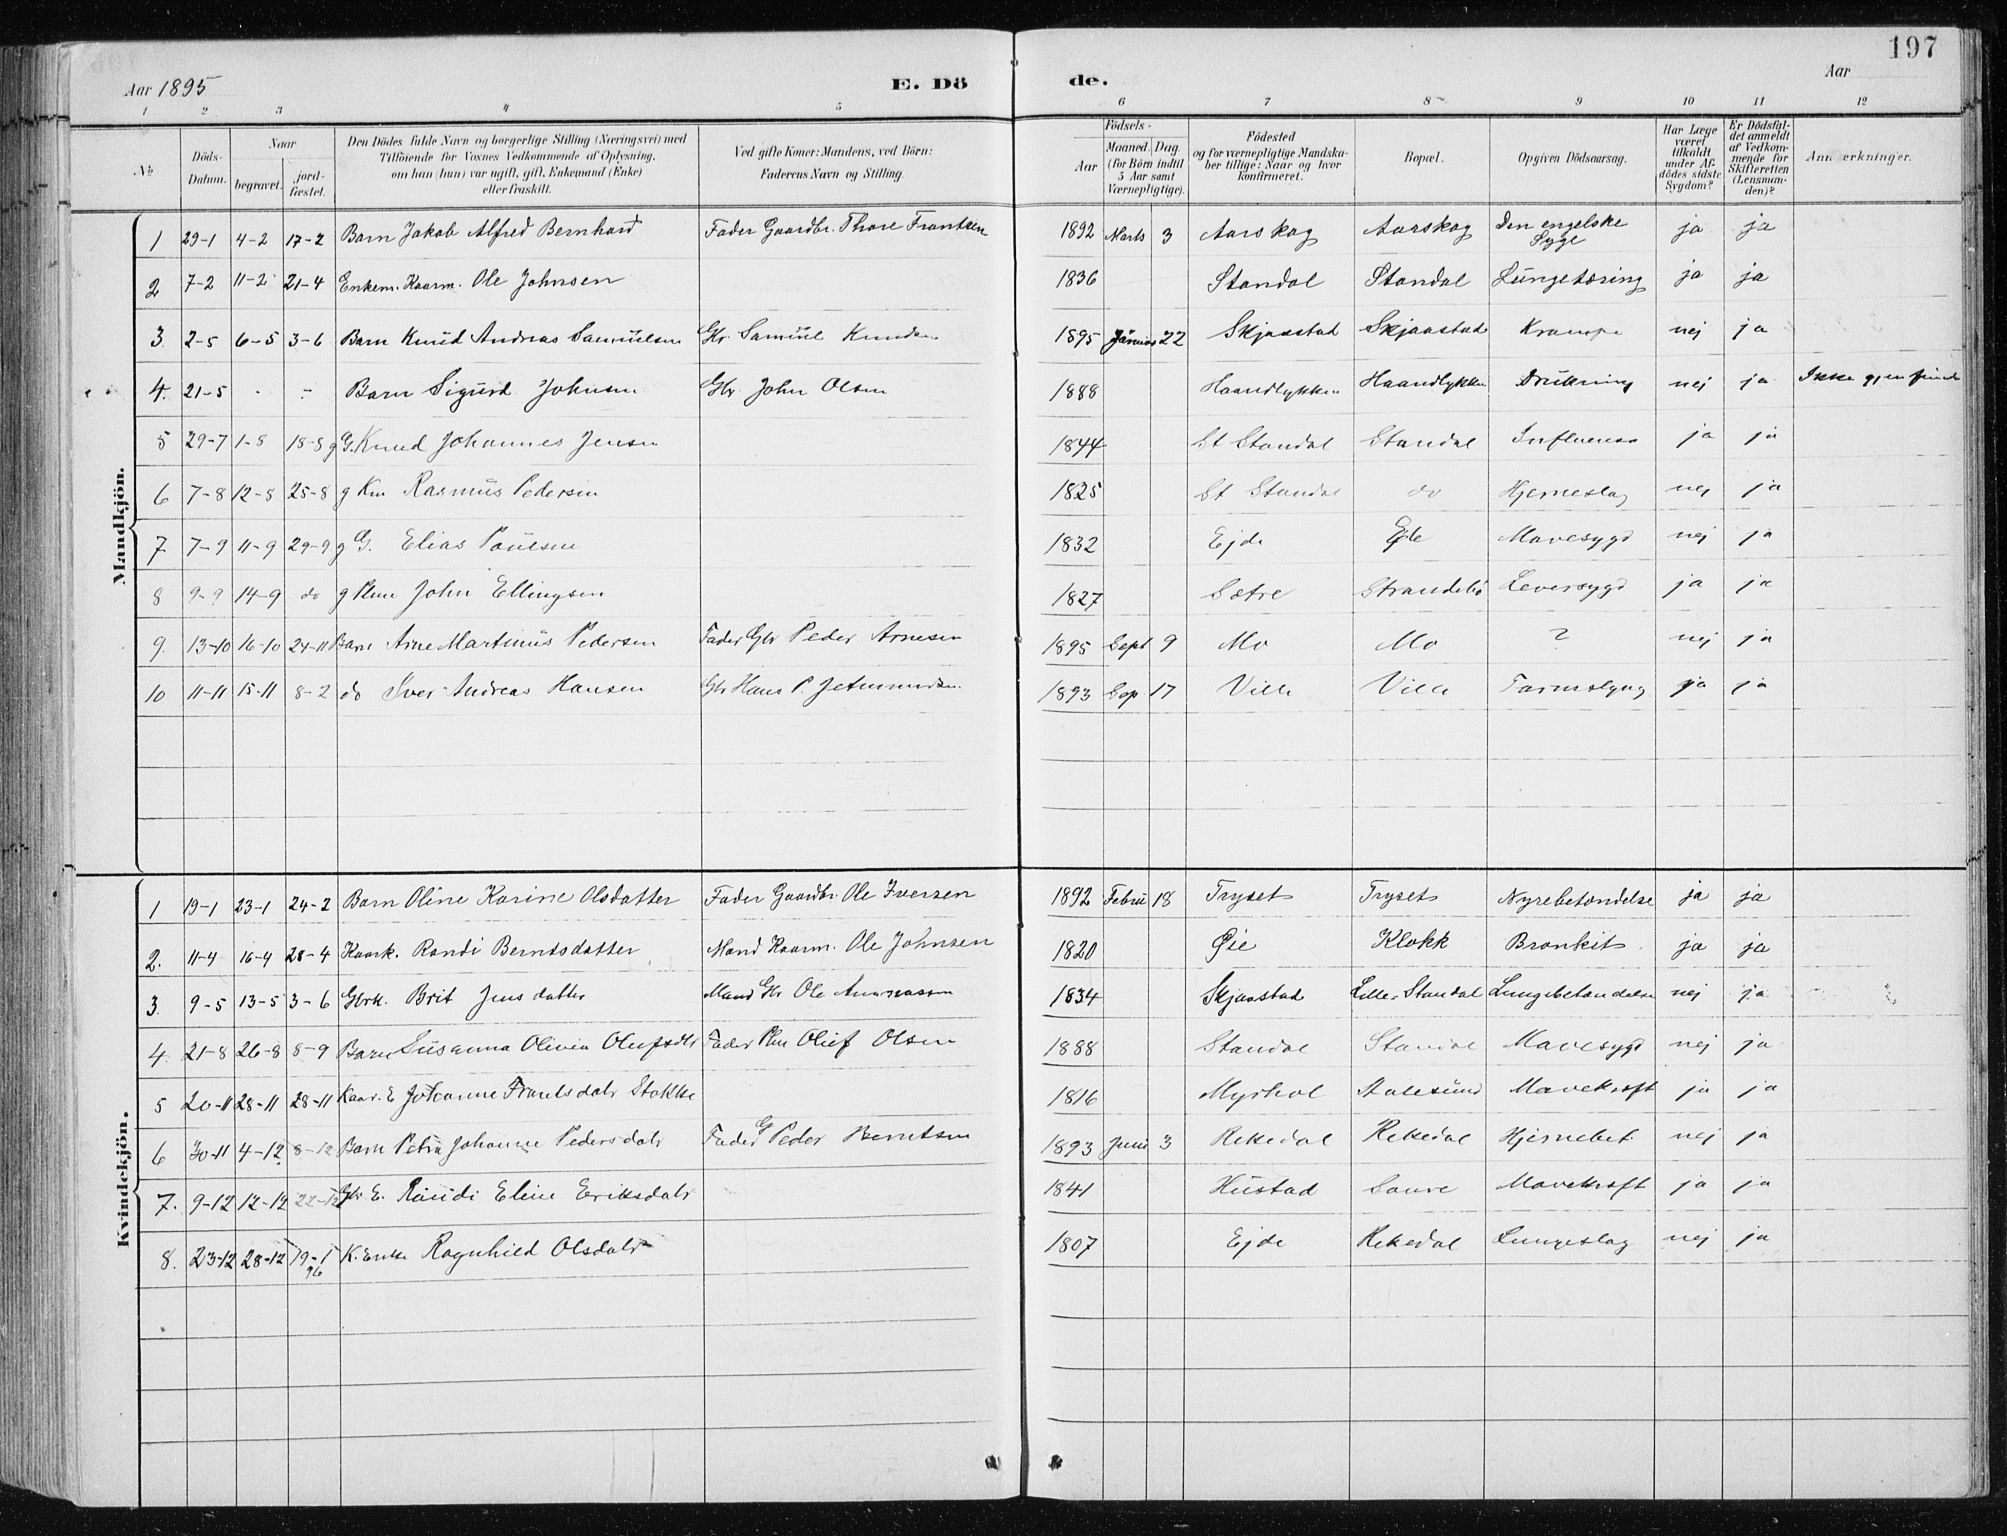 197
Aar 1895
E. Dö
de.
Aar
1 2 3 4 5 6 7 8 9 10 11 12
No.
Döds-Datum.
Naar
begravet.
jord-fæstet.
Den Dödes fulde Navn og borgerlige Stilling (Næringsvei) med
Tilföiende for Voxnes Vedkommende af Oplysning,
om han (hun) var ugift, gift, Enkemand (Enke)
eller fraskilt.
Ved gifte Koner: Mandens, ved Börn:
Faderens Navn og Stilling.
Födsels-
Aar
Maaned. Dag.
(for Börn indtil
5 Aar samt
Værnepligtige).
Födested
og for værnepligtige Mandska-
ber tillige: Naar og hvor
konfirmeret.
Bopæl.
Opgiven Dödsaarsag.
Har Læge
været
tilkaldt
under Af-
dödes sidste
Sygdom?
Er Dödsfal-
det anmeldt
af Vedkom-
mende for
Skifteretten
(Lensman-
den)?
Anmærkninger.
Mandkjön.
1 29-1 4-2 17-2 Barn Jakob Alfred Bernhard Fader Gaardbr. Thore Frantzen 1892 Marts 3 Aarskog Aarskog Den engelske Syge ja ja
2 7-2 11-2 21-4 Enkem. Kaarm. Ole Johnsen 1836 Standal Standal Lungetæring ja ja
3 2-5 6-5 3-6 Barn Knud Andreas Samuelsen Gbr. Samuel Knudsen 1895 Januar 22 Skjaastad Skjaastad Krampe nej ja
4. 21-5 - - Barn Sigurd Johnsen Gbr John Olsen 1888 Haandlykken Haandlykken Drukning nej ja Ikke gjenfunden
5 29-7 1-8 18-8 g G. Knud Johannes Jensen 1844 St Standal Standal Influensa ja ja
6 7-8 12-8 25-8 g Km Rasmus Pedersen 1825 St Standal do Hjerneslag nej ja
7. 7-9 11-9 29-9 g G. Elias Poulsen 1832 Ejde Ejde Mavesygd nej ja
8 9-9 14-9 do g Plm John Ellingsen 1827 Sætre Leversygd ja ja
9. 13-10 16-10 24-11 Barn Arne Martinus Pedersen Fader Gbr Peder Arnesen 1895 Sept 9 Mo Mo ? nej ja
10 11-11 15-11 8-2 do Iver Andreas Hansen Gbr Hans P. 1893 Sep 17 Ville Ville ja ja
Kvindekjön.
1 19-1 23-1 24-2 Barn Oline Karine Olsdatter Fader Gaardbr. Ole Iversen 1892 Febru 18 Tryset Tryset Nyrebetændelse ja ja
2. 11-4 16-4 28-4 Kaark. Randi Berntsdatter Mand Kaarm. Ole Johnsen 1820 Øie Klokk Bronkit ja ja
3. 9-5 13-5 3-6 Gbrk. Brit Jensdatter Mand Gbr Ole Andreassen 1834 Skjaastad Lille-Standal Lungebetændelse nej ja
4. 21-8 26-8 8-9 Barn Susanna Olivia Olufsdtr Fader Plm Oluf Olsen 1888 Standal Standal Mavesygd nej ja
5 20-11 28-11 28-11 Kaar. E Johanne Frantsdatr Stokke 1816 Myrhol Aalesund Mavekræft ja ja
6 30-11 4-12 8-12 Barn Petra Johanne Pedersdatr Fader G Peder Berntsen 1893 Juni 3 Rekedal Rekedal Hjernebet. nej ja
7. 9-12 12-12 22-12 Gbr E. Randi Eline Eriksdatr 1841 Hustad Saure Mavekræft ja ja
8. 23-12 28-12 19-1 96 K. Enke Ragnhild Olsdatr 1807 Ejde Rekedal Lungeslag nej ja